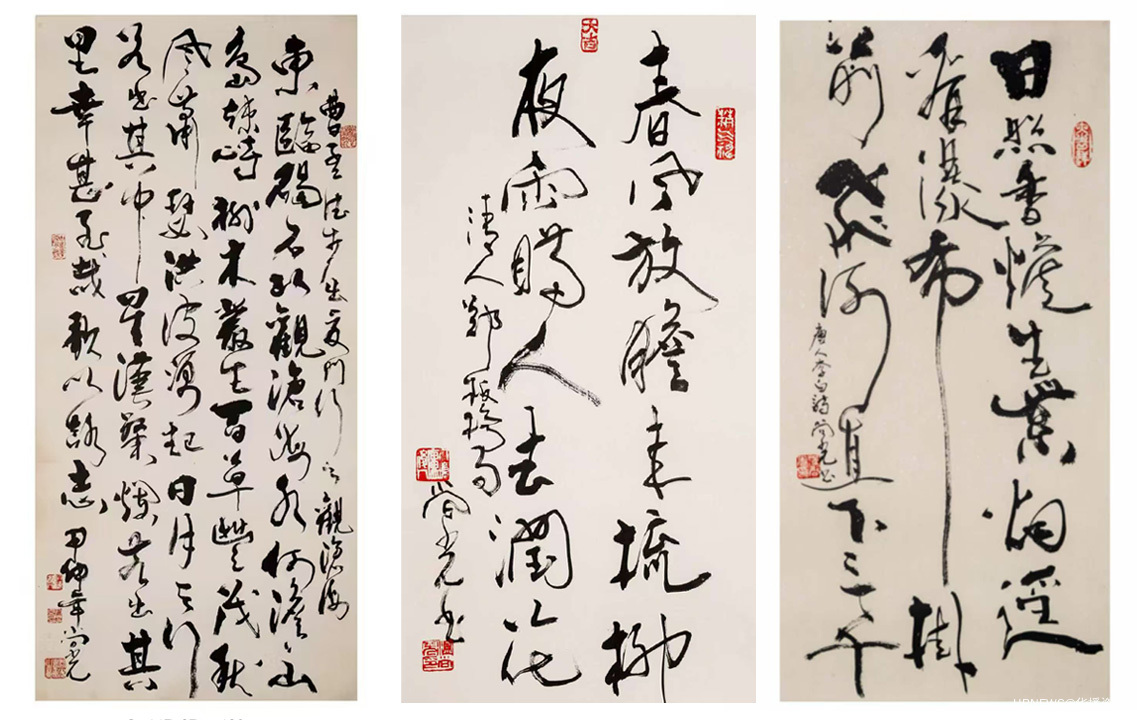 曹孟德步出夏門行之觀滄海
東臨碣石以觀滄海水何澹澹山
島竦峙樹木叢生百草豐茂秋
風蕭瑟洪波湧起日月之行
若出其中星漢粲爛若出其
里幸甚至哉歌以詠志 甲申年尚光
春风放膽来梳柳
夜雨瞞人去潤花
清人鄭板橋句
尚光书
日照香爐生紫烟遥
看瀑布掛
前川飛流直下三千
唐人李白詩尚光书